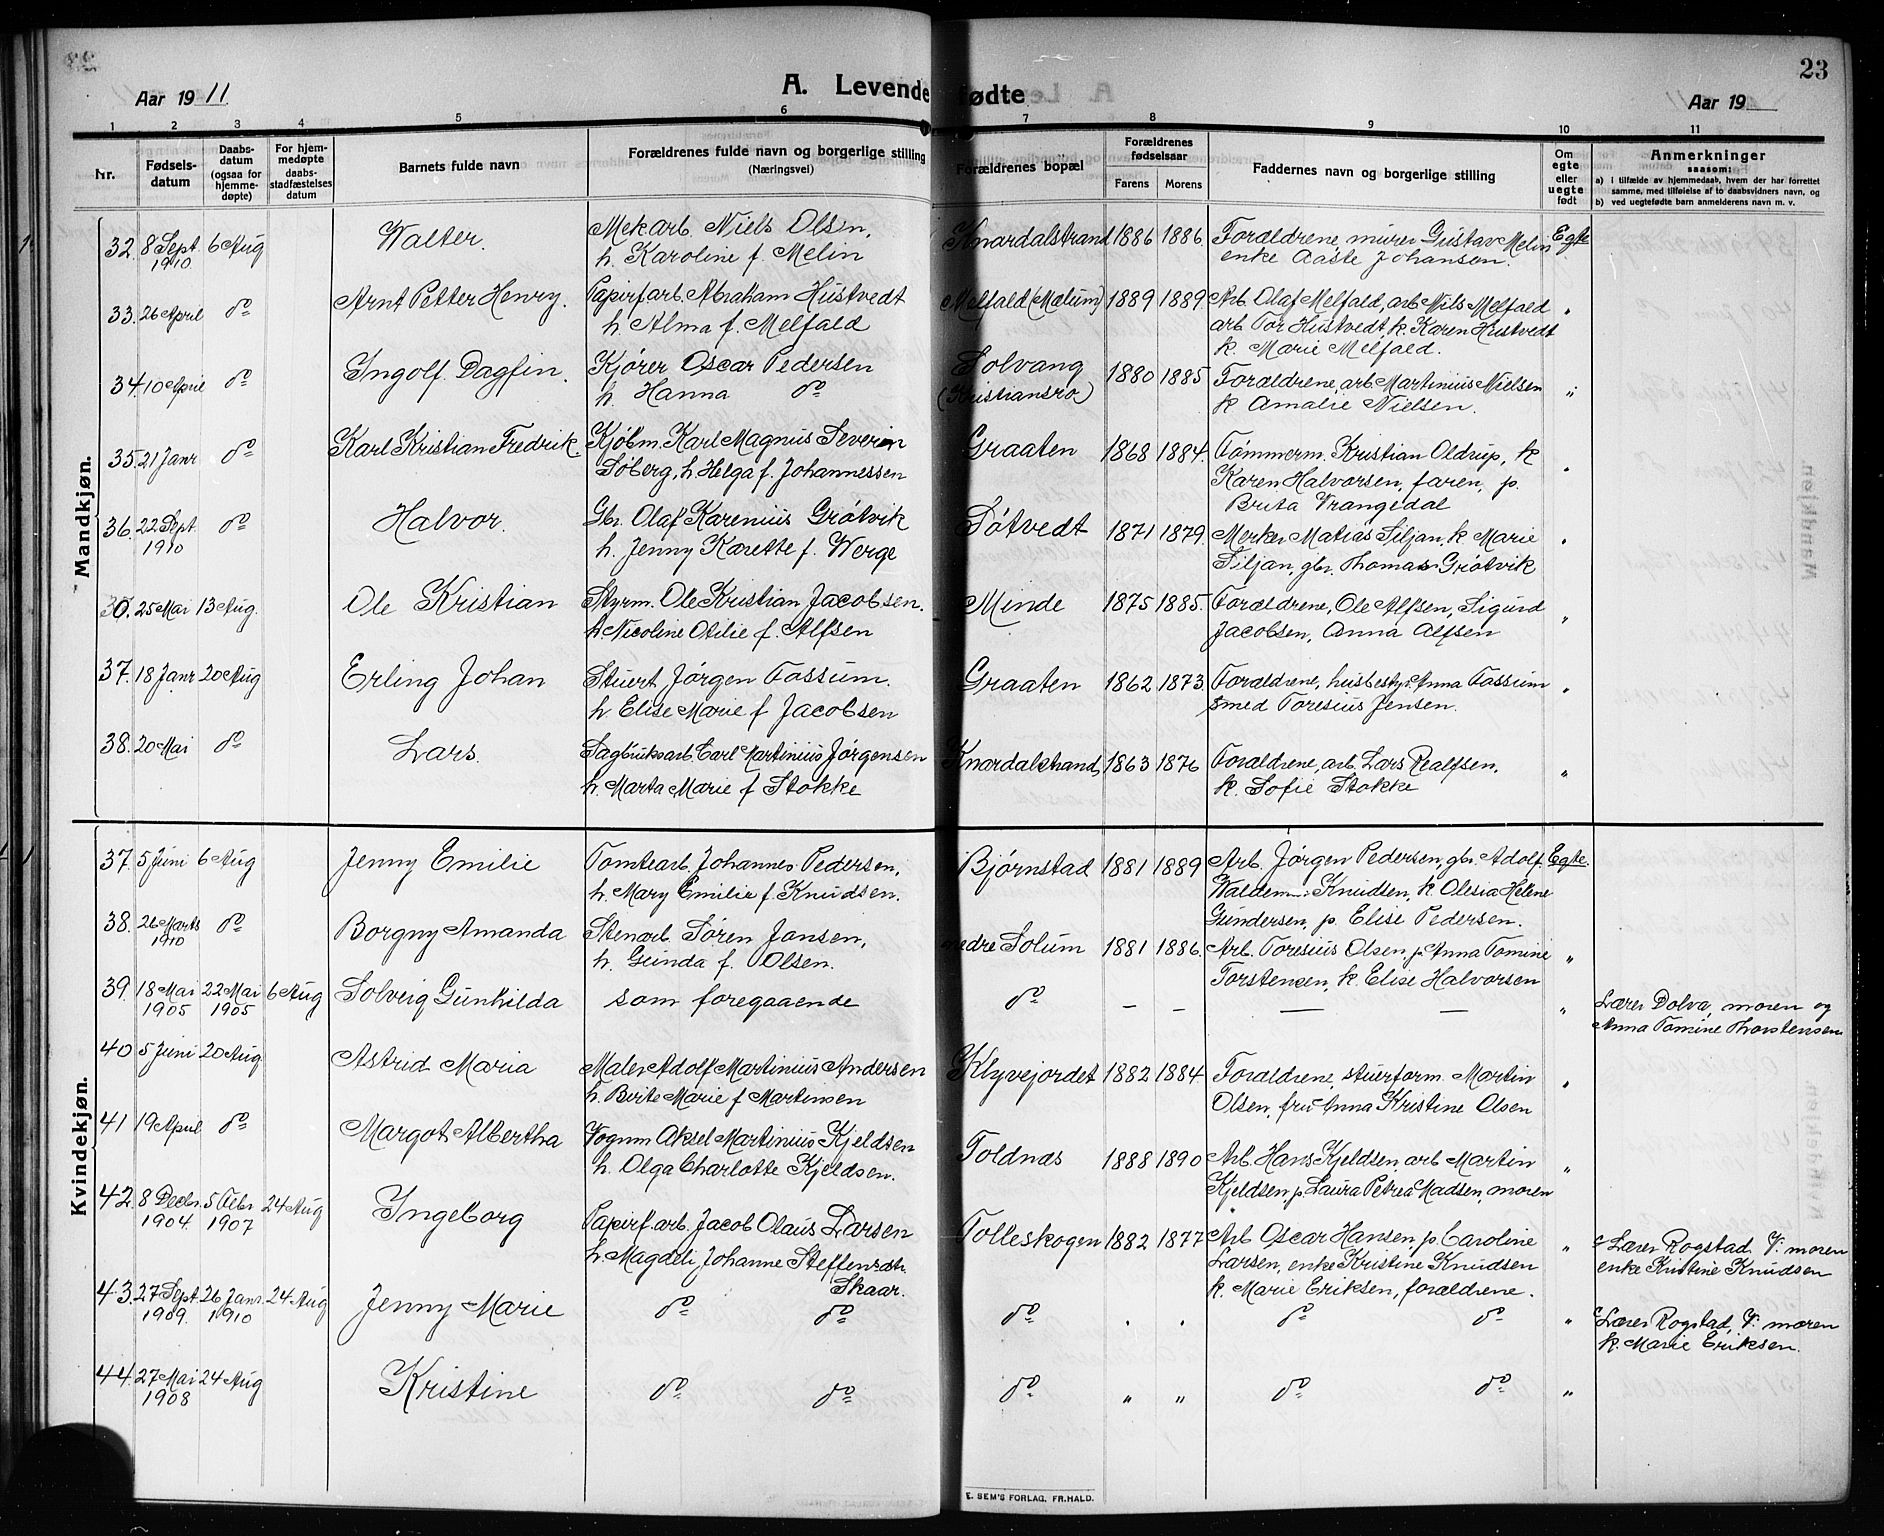 23
Aar 1911
A. Levende fødte
Aar 19
1 2 3 4 5 6 7 8 9 10 11
Nr.
Fødsels-
datum
Daabs-
datum
(ogsaa for
hjemme-
døpte)
For hjem-
medøpte
daabs-
stadfæstelses
datum
Barnets fulde navn
Forældrenes fulde navn og borgerlige stilling
(Næringsvei)
Forældrenes bopæl
Forældrenes
fødselsaar
Farens Morens
Faddernes navn og borgerlige stilling
Om
egte
eller
uegte
født
Anmerkninger
saasom:
a) i tilfælde av hjemmedaab, hvem der har forrettet
samme, med tilføielse af to daabsvidners navn, og
b) ved uegtefødte barn anmelderens navn m. v.
Mandkjøn.
32. 8 Sept. 6 Aug Walter. Mekarb. Niels Olsen, Knardalstrand 1886 1886. Forældrene, murer Gustav Melin Egte
1910 h. Karoline f. Melin enke Aaste Johansen.
33. 26 April do Arnt Petter Henry. Papirf.arb. Abraham Hustvedt Melfald (Mælum) 1889 1889. Arb. Olaf Melfald, arb. Nils Melfald "
h. Alma f. Melfald arb. Tor Hustvedt k. Karen Hustvedt
k. Marie Melfald.
34. 10 April do Ingolf Dagfin. Kjører Oscar Pedersen Solvang 1880 1885 Forældrene, arb. Martinius Nielsen "
h. Hanna do (Kristiansro) k Amalie Nielsen.
35. 21 Janr do Karl Kristian Fredrik. Kjøbm. Karl Magnus Severin Graaten 1868 1884. Tømmerm. Kristian Oldrup, k "
Søberg, h. Helga f. Johannessen Karen Halvorsen, faren, p.
Brita Vrangedal
36. 22 Sept. do Halvor. Gbr. Olaf Karenius Grøtvik Søtvedt 1871 1879. Merker Matias Siljan, k Marie "
1910 h. Jenny Karette f. Werge Siljan, gbr. Thomas Grøtvik
30. 25 Mai 13 Aug. Ole Kristian Styrm. Ole Kristian Jacobsen. Minde 1875 1885. Forældrene, Ole Alfsen, Sigurd "
h. Nicoline Otilie f. Alfsen Jacobsen, Anna Alfsen
37. 18 Janr 20 Aug Erling Johan Stuert Jørgen Fossum. Graaten 1862 1873. Forældrene, husbestyr. Anna Fossum "
h. Elise Marie f Jacobsen smed Toresius Jensen.
38. 20 Mai do Lars. Sagbruksarb. Carl Martinius Jørgensen Knardalstrand 1863 1876 Forældrene, arb. Lars Realfsen. "
h. Marta Marie f Stokke k. Sofie Stokke
Kvindekjøn.
37. 5 Juni 6 Aug Jenny Emilie Tomtearb. Johannes Pedersen, Bjørnstad 1881 1889 Arb. Jørgen Pedersen, gbr. Adolf Egte.
h. Mary Emilie f. Knudsen. Knudsen, k. Olesia Helene
Gundersen, p. Elise Pedersen.
38. 26 Marts do Borgny Amanda Stenarb. Søren Jansen, nedre Solum 1881 1886. Arb. Toresius Olsen, p. Anna Tomine "
1910 h. Gunda f. Olsen. Torstensen, k. Elise Halvorsen
39. 18 Mai 22 Mai 6 Aug Solveig Gunhilda som foregaaende do – – — — " Lærer Dolva, moren og
1905 1905 Anna Tomine Thorstensen
40 5 Juni 20 Aug Astrid Maria Maler Adolf Martinius Andersen Klyvejordet 1882 1884. Forældrene, stuerform. Martin "
h. Berte Marie f Martinsen Olsen, fru Anna Kristine Olsen
41 19 April do Margot Albertha Vognm Aksel Martinius Kjeldsen Toldnæs 1888 1890 Arb. Hans Kjeldsen, arb Martin "
h. Olga Charlotte Kjeldsen. Kjeldsen, p. Laura Petrea Madsen, moren
42. 8 Decbr. 5 Febr 24 Aug Ingeborg Papirf.arb. Jacob Olaus Larsen Tolleskogen 1882 1877 Arb Oscar Hansen, p. Caroline " Lærer Rogstad. V: moren
1904. 1907 h. Magdeli Johanne Steffensdtr. Larsen, enke Kristine Knudsen enke Kristine Knudsen
Skaar. k. Marie Eriksen, forældrene.
43. 27 Sept. 26 Janr. 24 Aug Jenny Marie do do do " " do do " Lærer Rogstad, V: moren
1909. 1910 k. Marie Eriksen.
44. 27 Mai 24 Aug Kristine do do do " " do do "
1908
E. SEM'S FORLAG, FR.HALD.